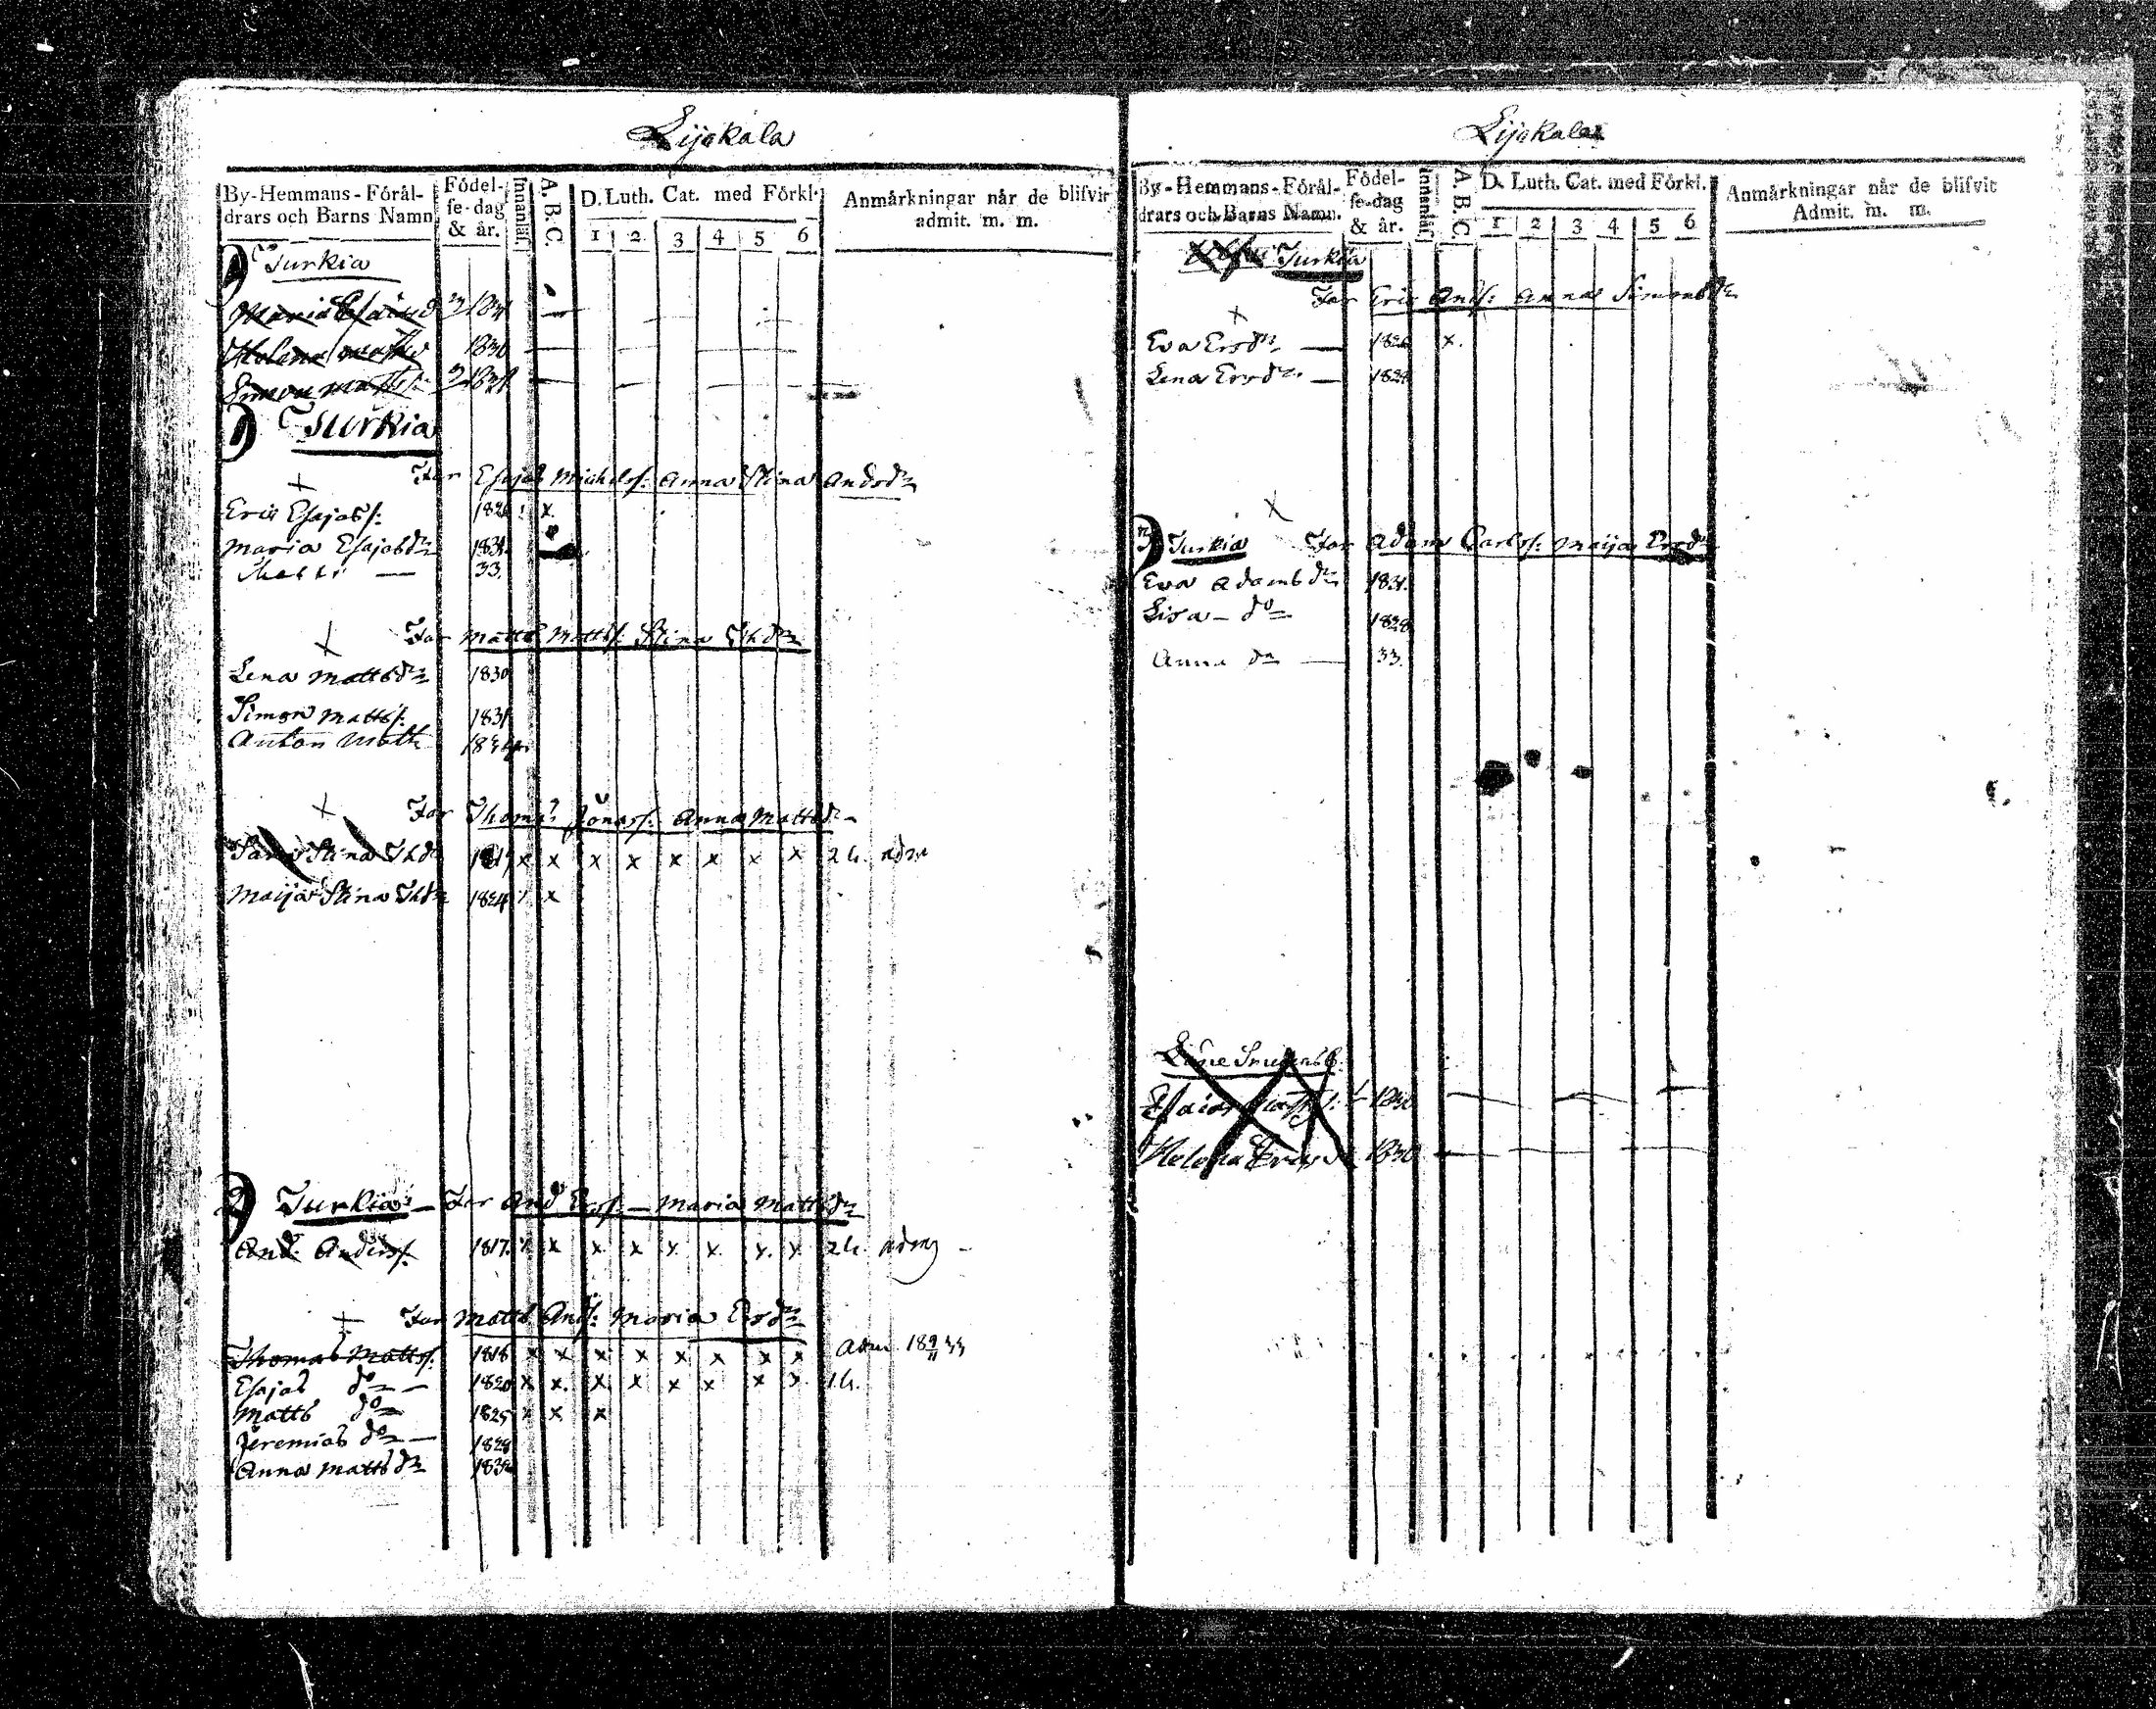 Lijakala
By-Hemmans-Föräl-
drars och Barns Namn
Födel-
se-dag
& år.
Innanläs.
A. B. C.
D. Luth. Cat. med Förkl.
1 2 3 4 5 6
Anmärkningar när de blifvit
admit. m. m.
1) Turkia
Maria Esaiæd 1831
Helena 1830
Simon Matts: 1831
1) Turkia
+ Far Esajas Michels: Anna Stina Andsdr
Eric Esajass: 1826 x.
Maria Esajasdr 1831
Matts — 33.
+ Far Matts Matts: Stina Thdr
Lena Mattsdr 1830
Simon Matts: 1831
Anton Matts
+ Far Thoms Jonass: Anna Mattsdr
Stina Thdr x x x x x x x x 2 h. adm
Maija Stina Thdr 1824 x
2) Turkia — Far And Ers: — Maria Mattsdr
And. Anders: 1817. x x x x x x x x 2 h. adm
+ Far Matts Ands: Maria Ersdr
Thomas Matts: 1818 x x x x x x x x Adm. 18
Esajas do — 1820 x x. x x x x x x 1 h.
Matts do 1825 x x x
Jeremias do —
Anna Mattsdr 1832
Lijakala
By-Hemmans-Föräl-
drars och Barns Namn.
Födel-
se-dag
& år.
Innanläs.
A. B. C
D. Luth. Cat. med Förkl.
1 2 3 4 5 6
Anmärkningar när de blifvit
Admit. m. m.
Turkia
Far Eric Ands: Anna Simonsdr
+
Eva Ersdr — 1826 x.
Lena Ersdr —
+
3) Turkia Far Adam Carls: Maija Ersdr
Eva Adamsdr 1831.
Lisa — do 1828
Anna do — 33.
Esaias 1830
Helena 1830